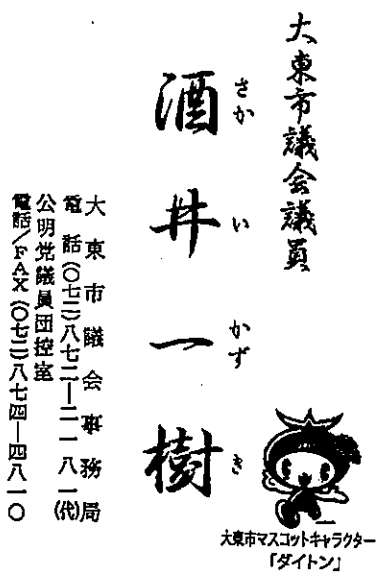 大東市議会議員
酒井一樹
さかいかずき
大東市議会事務局
電話(〇七二)八七二―二一八一(代)
公明党議員団控室
電話/FAX(〇七二)八七四―四八一〇
大東市マスコットキャラクター
「ダイトン」